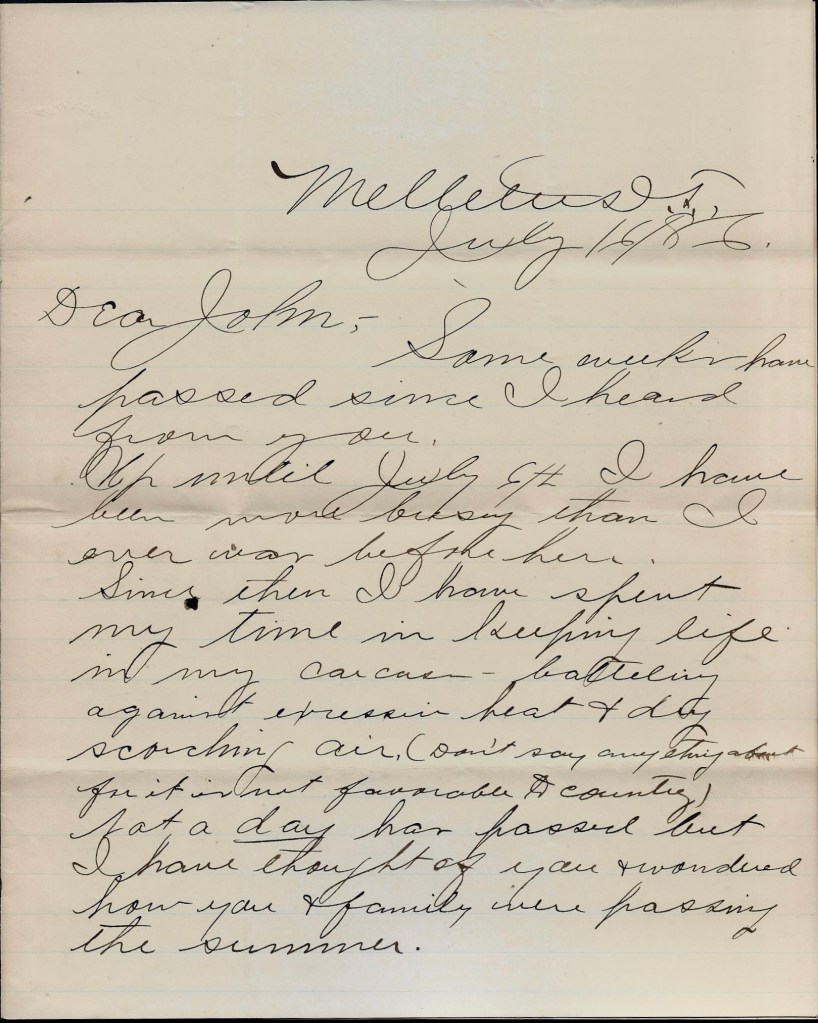 Mellette D.T.
July 16/86.
Dear John,-
Some weeks have
passed since I heard
from you.
Up until July 6th I have
been more buisy than I
ever was before here.
Since then I have spent
my time in keeping life
in my carcass - batteling
against excessive heat & dry
scorching air, (Don't say anything about
for it is not favorable to country)
Not a day has passed but
I have thought of you & wondered
how you & family were passing
the summer.